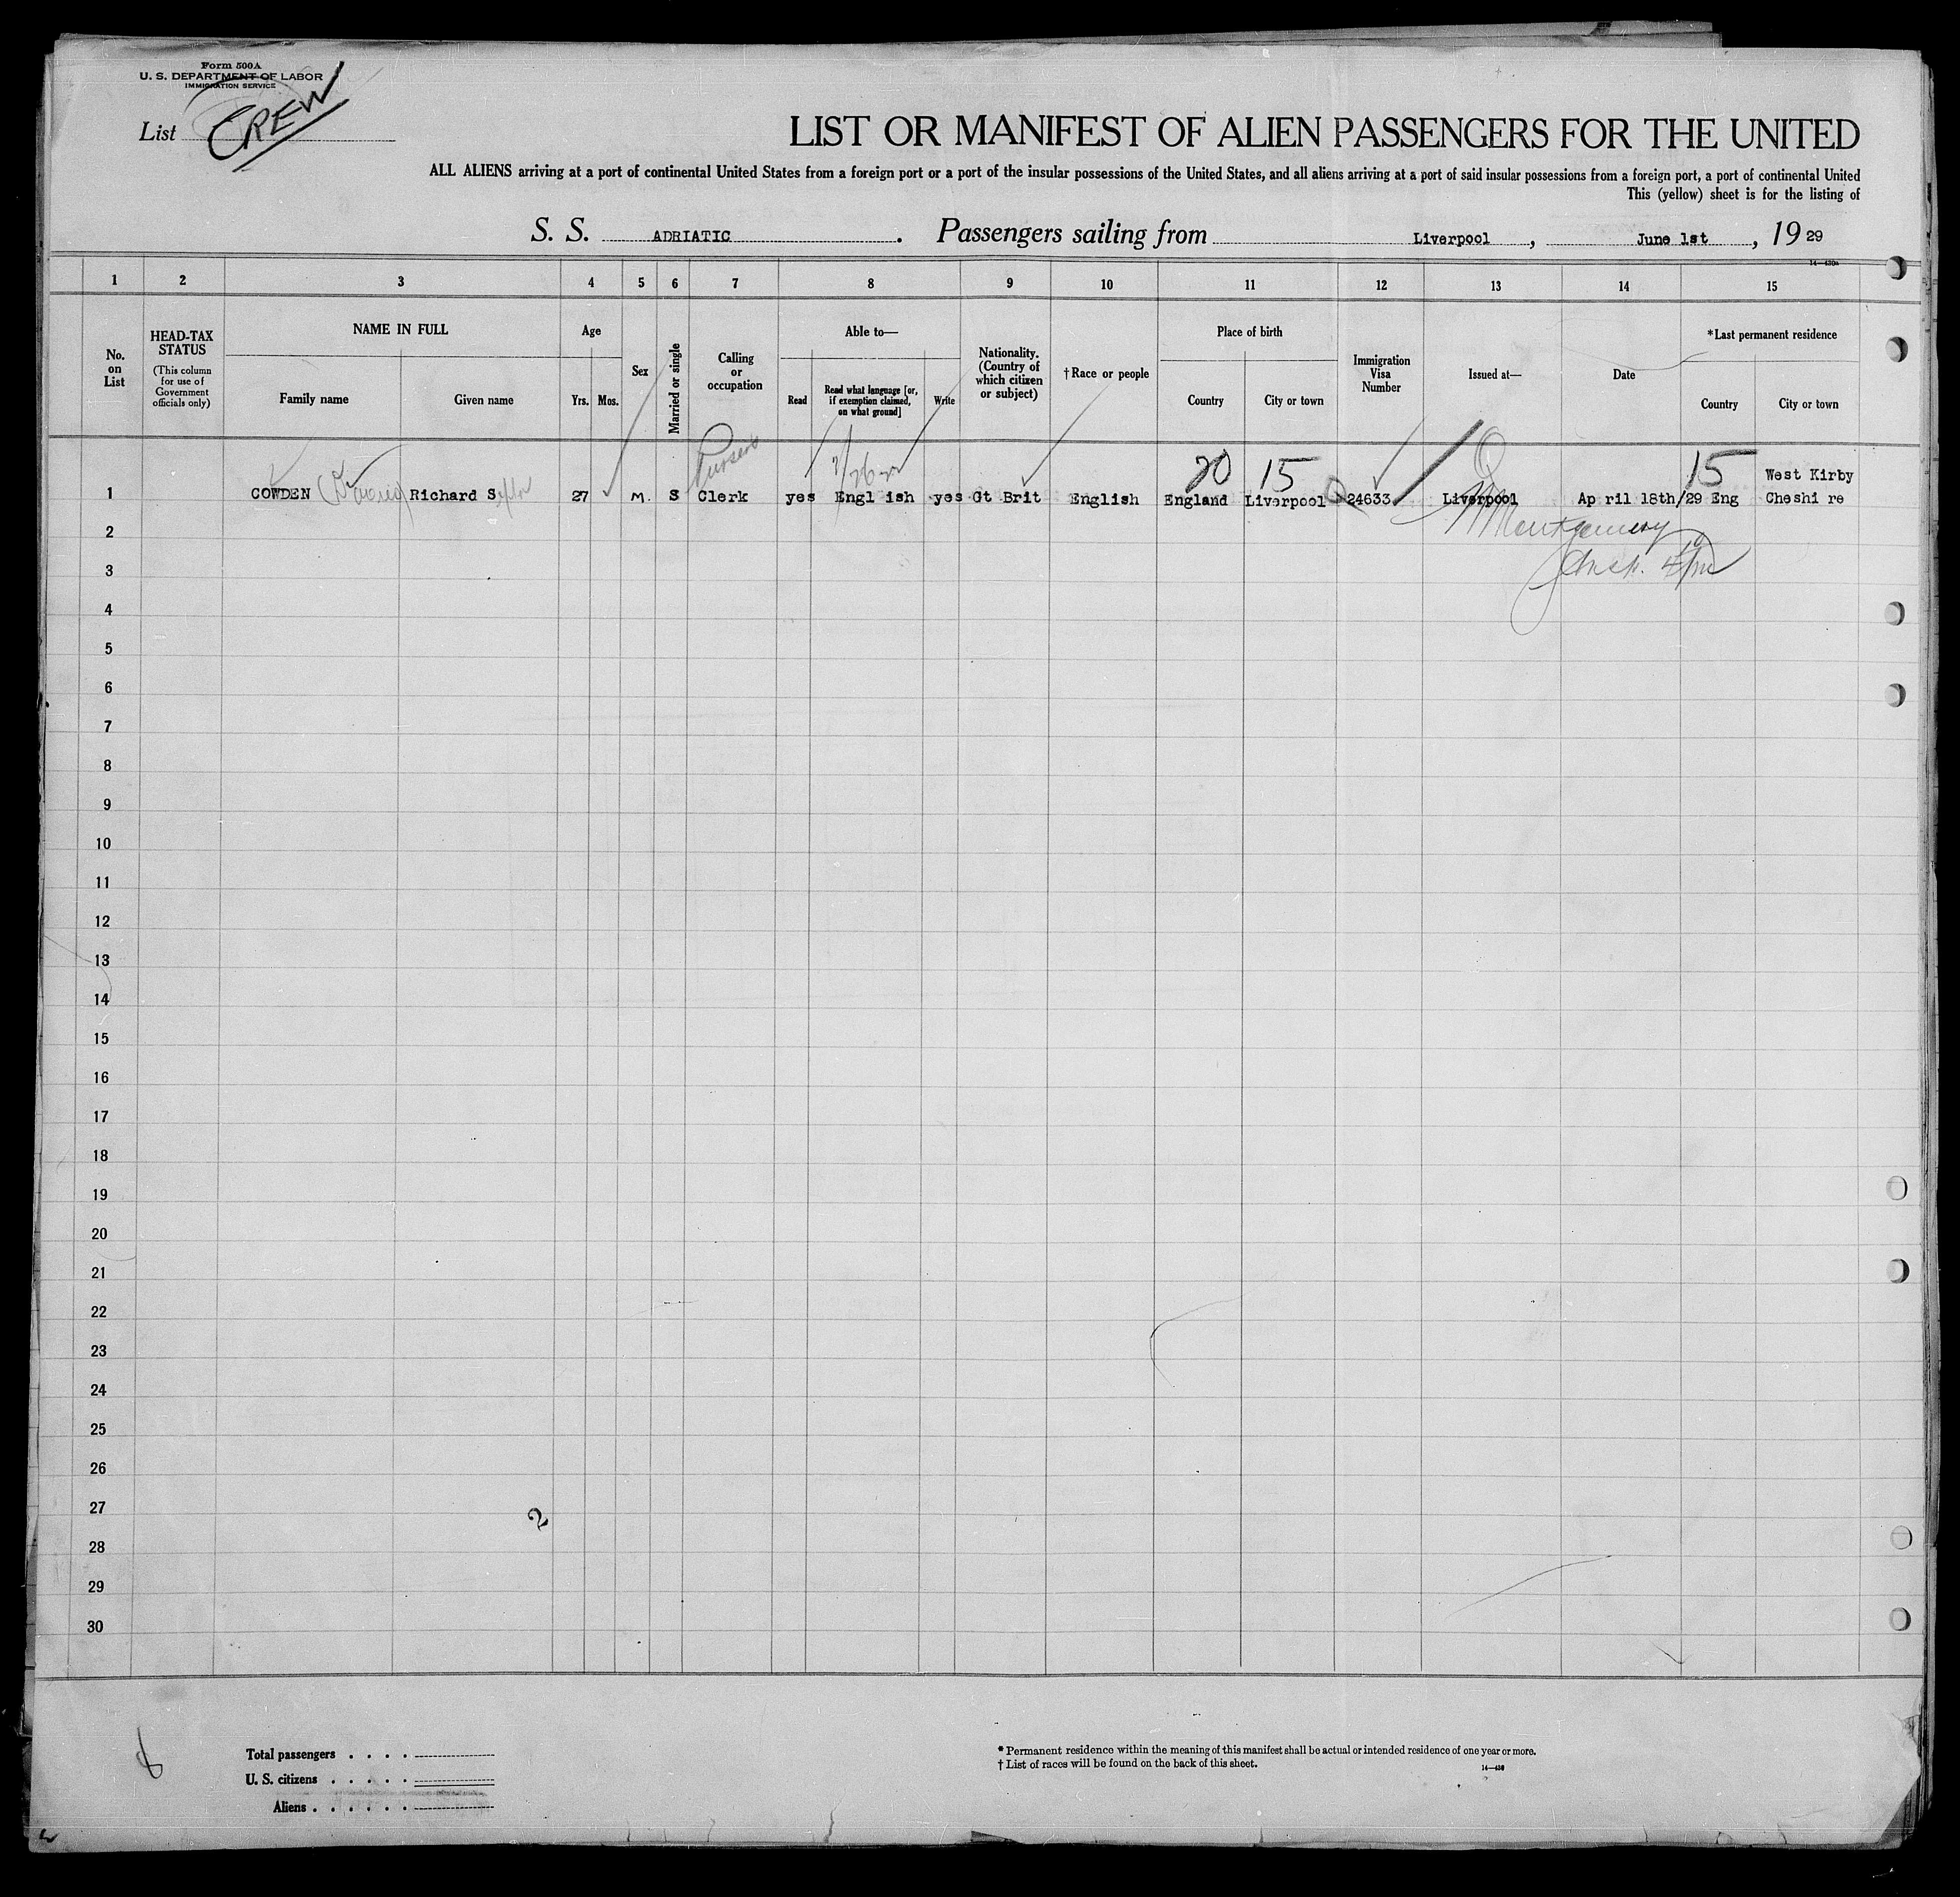 Form 500A
U. S. DEPARTMENT OF LABOR
IMMIGRATION SERVICE
List CREW
LIST OR MANIFEST OF ALIEN PASSENGERS FOR THE UNITED
ALL ALIENS arriving at a port of continental United States from a foreign port or a port of the insular possessions of the United States, and all aliens arriving at a port of said insular possessions from a foreign port, a port of continental United
This (yellow) sheet is for the listing of
S. S. ADRIATIC. Passengers sailing from Liverpool, June 1st, 19 29
14—430a
1 2 3 4 5 6 7 8 9 10 11 12 13 14 15
No. on List
HEAD-TAX STATUS
(This column for use of Government officials only)
NAME IN FULL
Family name Given name
Age
Yrs. Mos.
Sex
Married or single
Calling or occupation
Able to—
Read
Read what language [or, if exemption claimed, on what ground]
Write
Nationality. (Country of which citizen or subject)
†Race or people
Place of birth
Country City or town
Immigration Visa Number
Issued at—
Date
*Last permanent residence
Country City or town
Pursers
20 15 15 West Kirby
1 COWDEN Richard S 27 M. S Clerk yes Engl ish yes Gt Brit English England Liverpool 24633 Liverpool Ap ril 18th/29 Eng Cheshi re
Montgomery
Insp.
2
3
4
5
6
7
8
9
10
11
12
13
14
15
16
17
18
19
20
21
22
23
24
25
26
27
2
28
29
30
Total passengers . . . .
U. S. citizens . . . . .
Aliens . . . . . .
* Permanent residence within the meaning of this manifest shall be actual or intended residence of one year or more.
† List of races will be found on the back of this sheet.
14—430